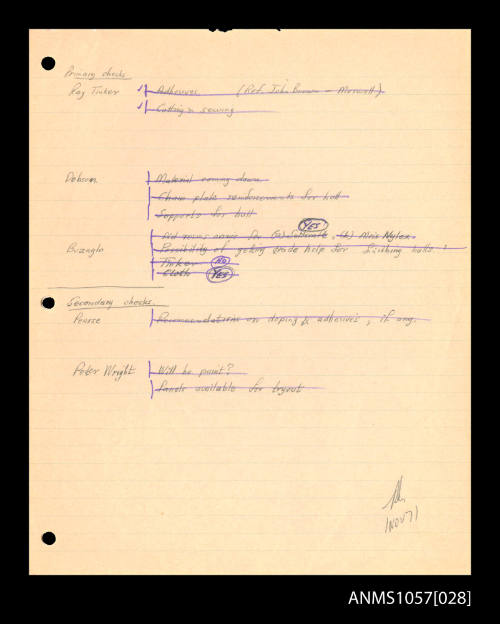 Primary checks.
Ray Tinker Adhesives. (Ref. John Brown - Monsett)
Cutting & sewing
Dobson Material coming down
Chain plate reinforcements for hull
Supports for hull
YES
Did come
Buzaglo Possibility of getting trade help for finishing hulls.
Tinker NO
Cloth YES
Secondary checks.
Pearse Recommendations on doping & adhesives, if any.
Peter Wright Will he paint?
Panels available for tryout
1 NOV 71
ANMS1057[028]